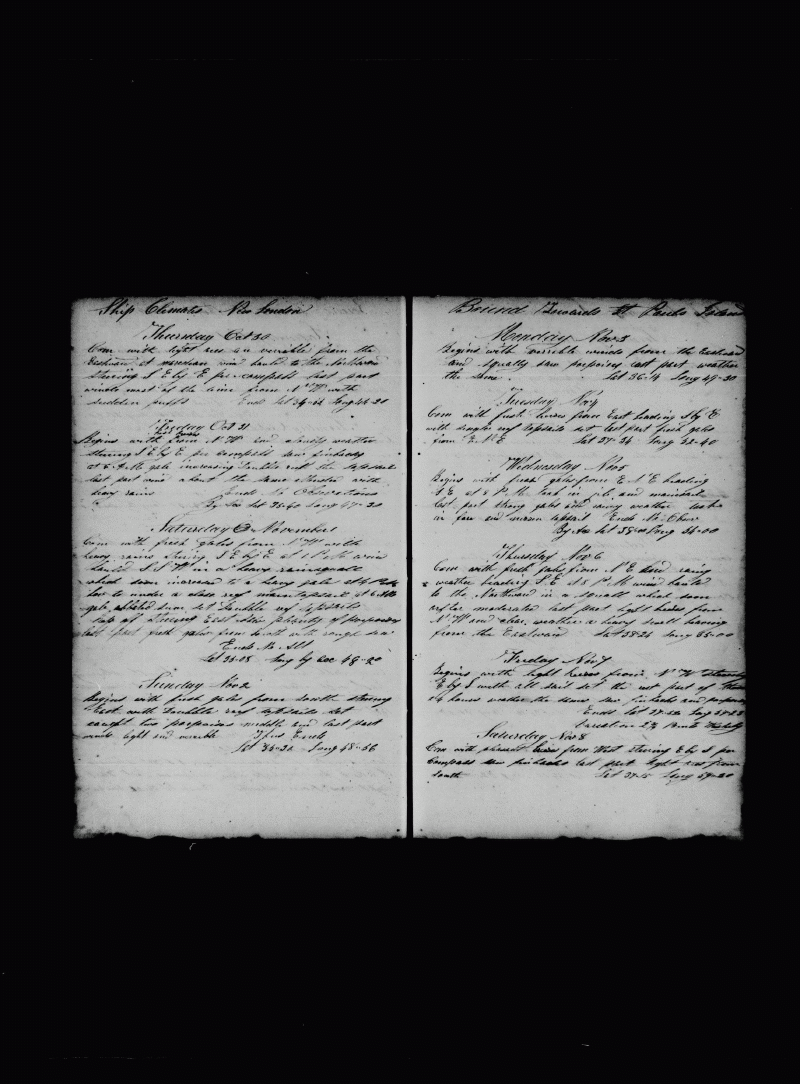 Ship Clematis New London
Thursday Oct 30
Com with light airs an variable from the
Eastward at meridian wind hauld to the Northward
Stearing S E by E per compass last part
winds most of the time from N W with
sudden puffs Ends Lat 34-44 Long 44-20
Friday Oct 31
Begins with from N W and cloudy weather
stearing S E by E per compass saw finbacks
at 6 P M gale increasing double reef the topsails
last part wind about the same attended with
heavy rains Ends No Observations
By Acc Lat 35-40 Long 47-20
Saturday November 1
Com with fresh gales from N W with
heavy rains stearing S E by E at 1 P M wind
hauld S S W in a heavy rainsquall
which soon increased to a heavy gale at 4 P M
hove to under a close reef maintopsail at 6 AM
gale abated some set double reef topsails
kep of Stearing East saw plenty of porpoises
last part fresh gales from South with rough sea
Ends No Obs
Lat 35-08 Long by acc 48-20
Sunday Nov 2
Begins with fresh gales from South stearing
East with double reef topsails set
caught two porpoises middle and last part
winds light and variable Thus Ends
Lat 35-32 Long 48-56
Bound Towards St Pauls Island
Monday Nov 3
Begins with variable winds from the Eastward
and squally saw porpoises last part weather
the same Lat 36-14 Long 49-30
Tuesday Nov 4
Com with fresh breezes from East heading S by E
with single reef topsails set last part fresh gales
from E N E Lat 37-36 Long 52-40
Wednesday Nov 5
Begins with fresh gales from E N E heading
S E at 8 P M took in jib and mainsail
last part strong gales and rainy weather took
in fore and mizen topsail Ends No Obser
By Acc Lat 38-00 Long 54-00
Thursday Nov 6
Com with fresh gales from N E and rainy
weather heading S E at 8 P M wind hauld
to the Northward in a squall which soon
after moderated last part light breezes from
N W and clear weather a heavy swell heaving
from the Eastward Lat 38-26 Long 55-00
Friday Nov 7
Begins with light breezes from N W stearing
E by S with all sail set the rest part of these
24 hours weather the same saw finbacks and porpoises
Ends Lat 37-52 Long
Variation 2¼ Points Westerly
Saturday Nov 8
Com with pleasant breezes from West stearing E by S per
Compass saw finbacks last part light airs from
South Lat 37-15 Long 59-20